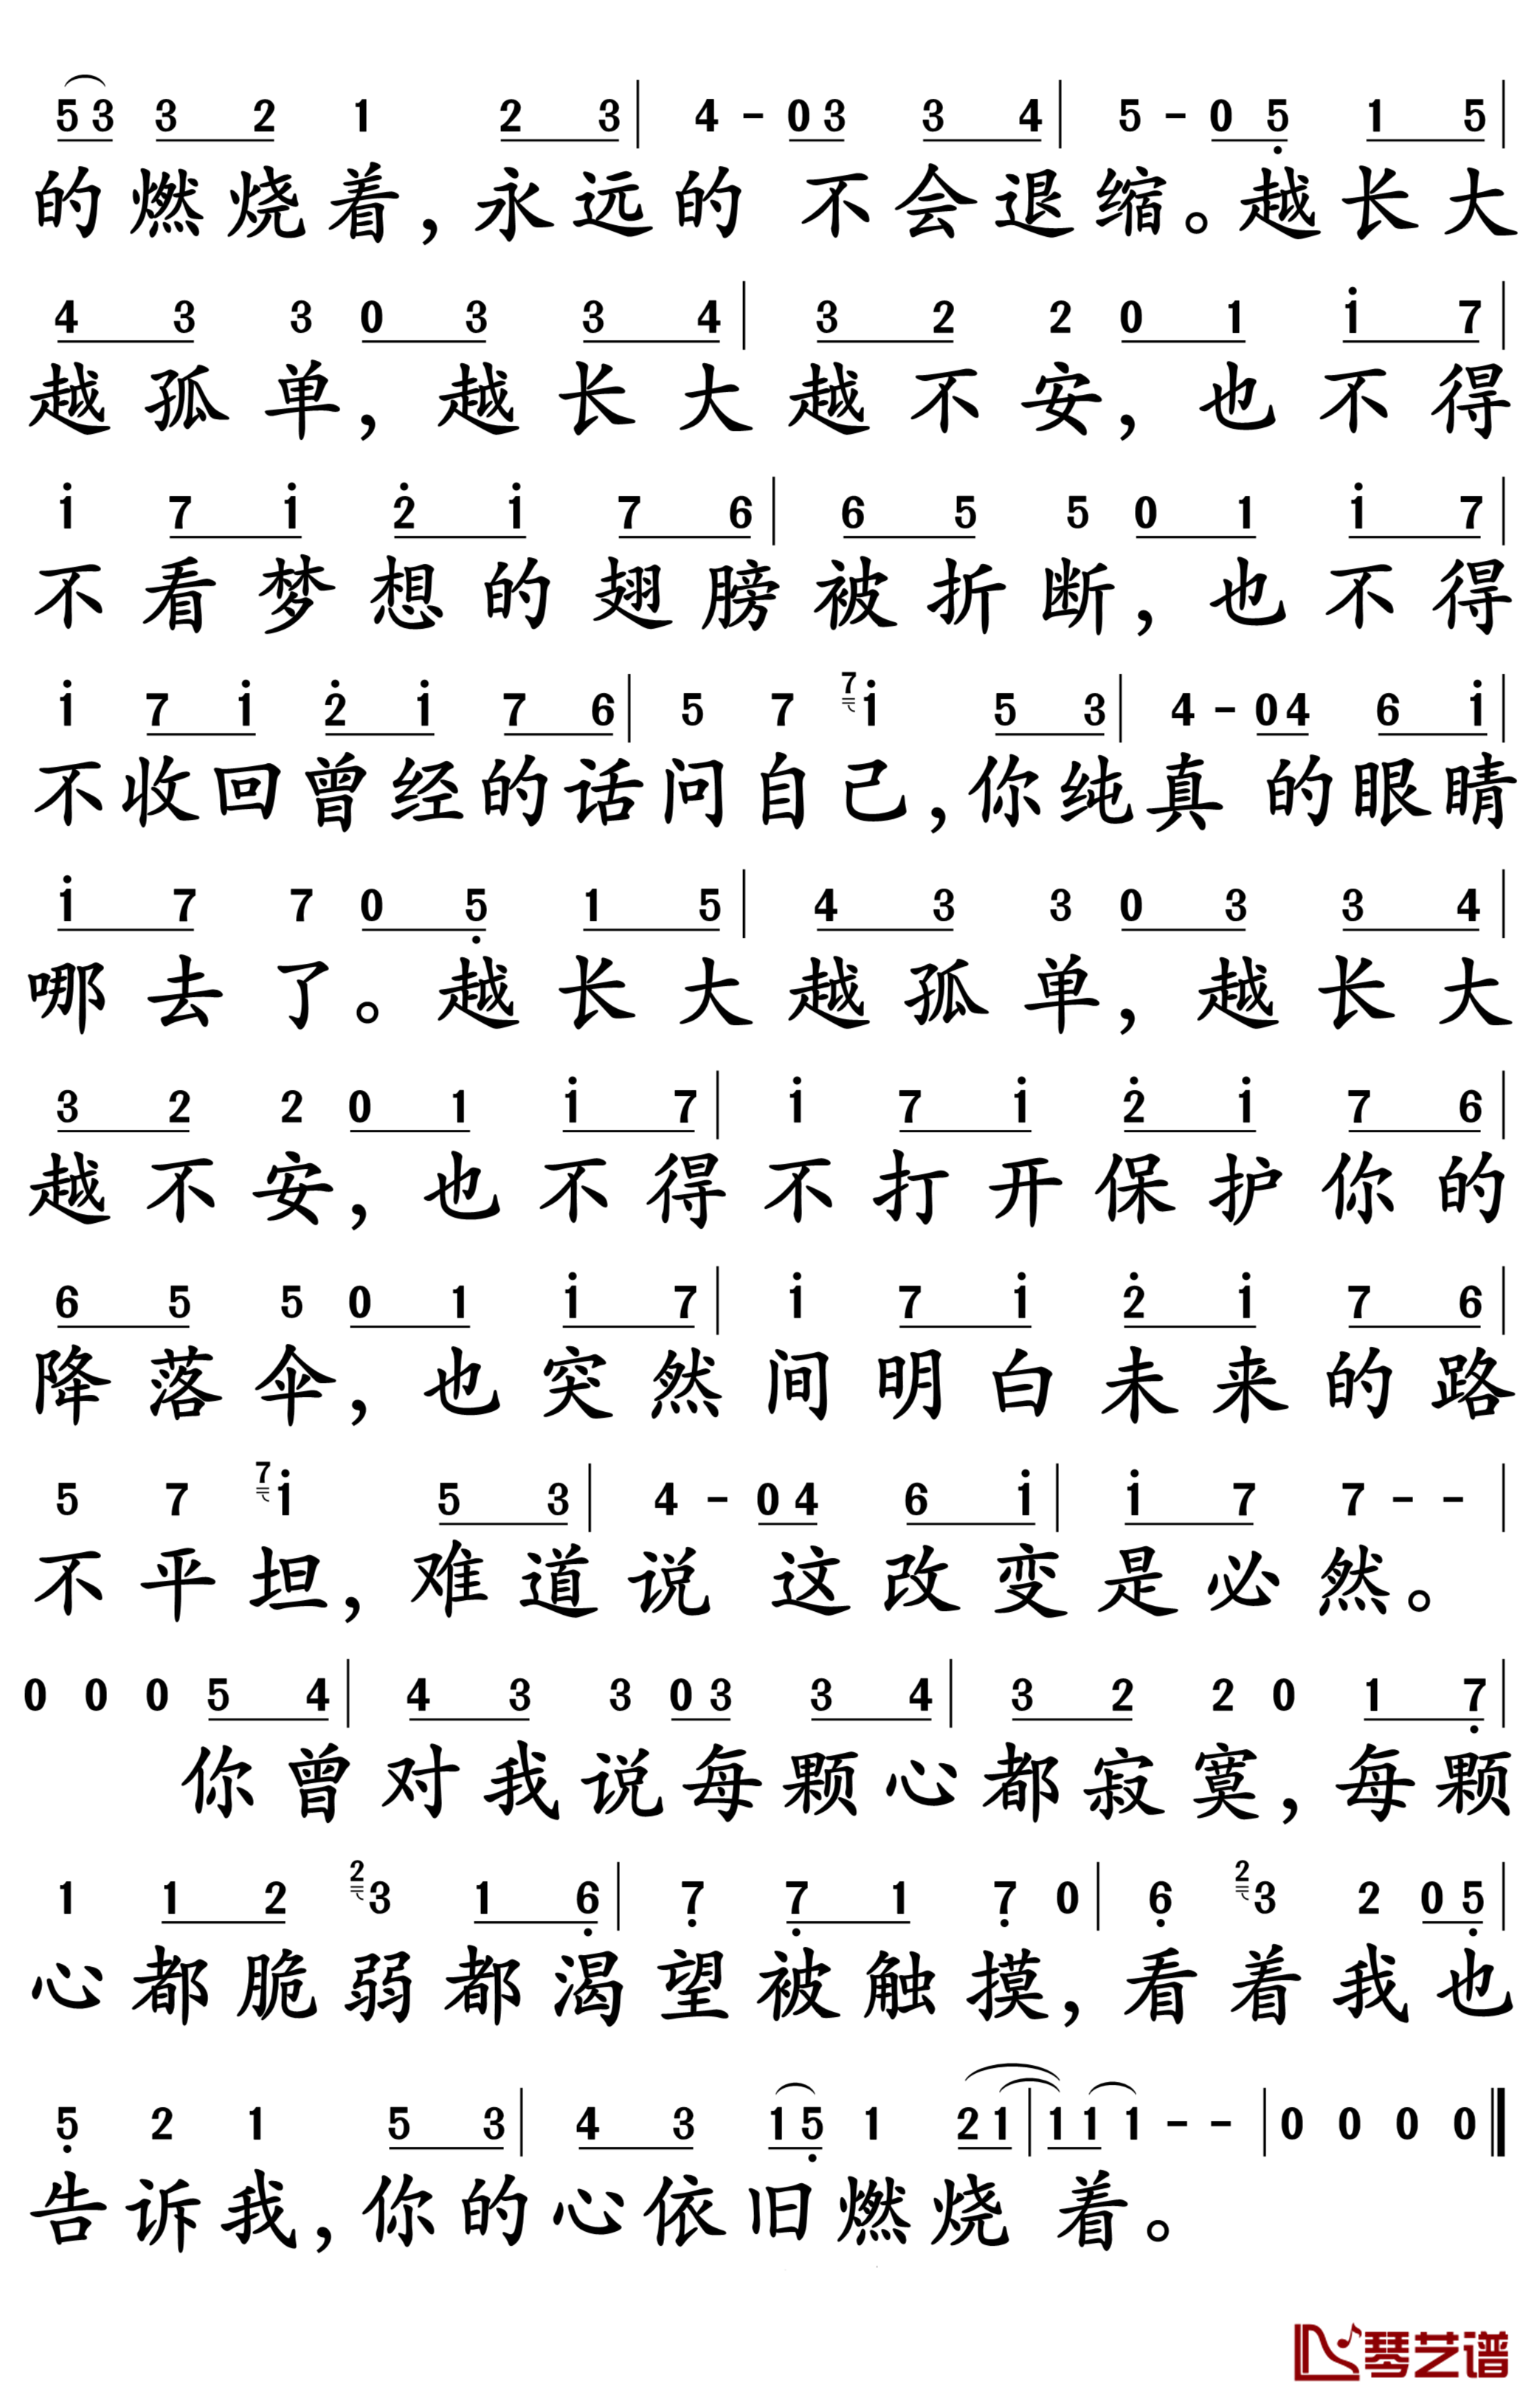 5 3 3 2 1 2 3 | 4 - 0 3 3 4 | 5 - 0 5̣ 1 5 |
的燃烧着,永远的 不会退缩。越长大
4 3 3 0 3 3 4 | 3 2 2 0 1 1̇ 7 |
越孤单,越长大越不安,也不得
1̇ 7 1̇ 2̇ 1̇ 7 6 | 6 5 5 0 1 1̇ 7 |
不看梦想的翅膀被折断,也不得
1̇ 7 1̇ 2̇ 1̇ 7 6 | 5 7 7 1̇ 5 3 | 4 - 0 4 6 1̇ |
不收回曾经的话问自己,你纯真 的眼睛
1̇ 7 7 0 5̣ 1 5 | 4 3 3 0 3 3 4 |
哪去了。越长大越孤单,越长大
3 2 2 0 1 1̇ 7 | 1̇ 7 1̇ 2̇ 1̇ 7 6 |
越不安,也不得不打开保护你的
6 5 5 0 1 1̇ 7 | 1̇ 7 1̇ 2̇ 1̇ 7 6 |
降落伞,也突然间明白未来的路
5 7 7 1̇ 5 3 | 4 - 0 4 6 1̇ | 1̇ 7 7 - - |
不平坦,难道说 这改变是必然。
0 0 0 5 4 | 4 3 3 0 3 3 4 | 3 2 2 0 1 7̣ |
你曾对我说每颗心都寂寞,每颗
1 1 2 2 3 1 6̣ | 7̣ 7̣ 1 7̣ 0 | 6̣ 2 3 2 0 5̣ |
心都脆弱都渴望被触摸,看着我也
5̣ 2 1 5 3 | 4 3 1 5̣ 1 2 1 | 1 1 1 - - | 0 0 0 0 ‖
告诉我,你的心依旧燃烧 着。
琴艺谱